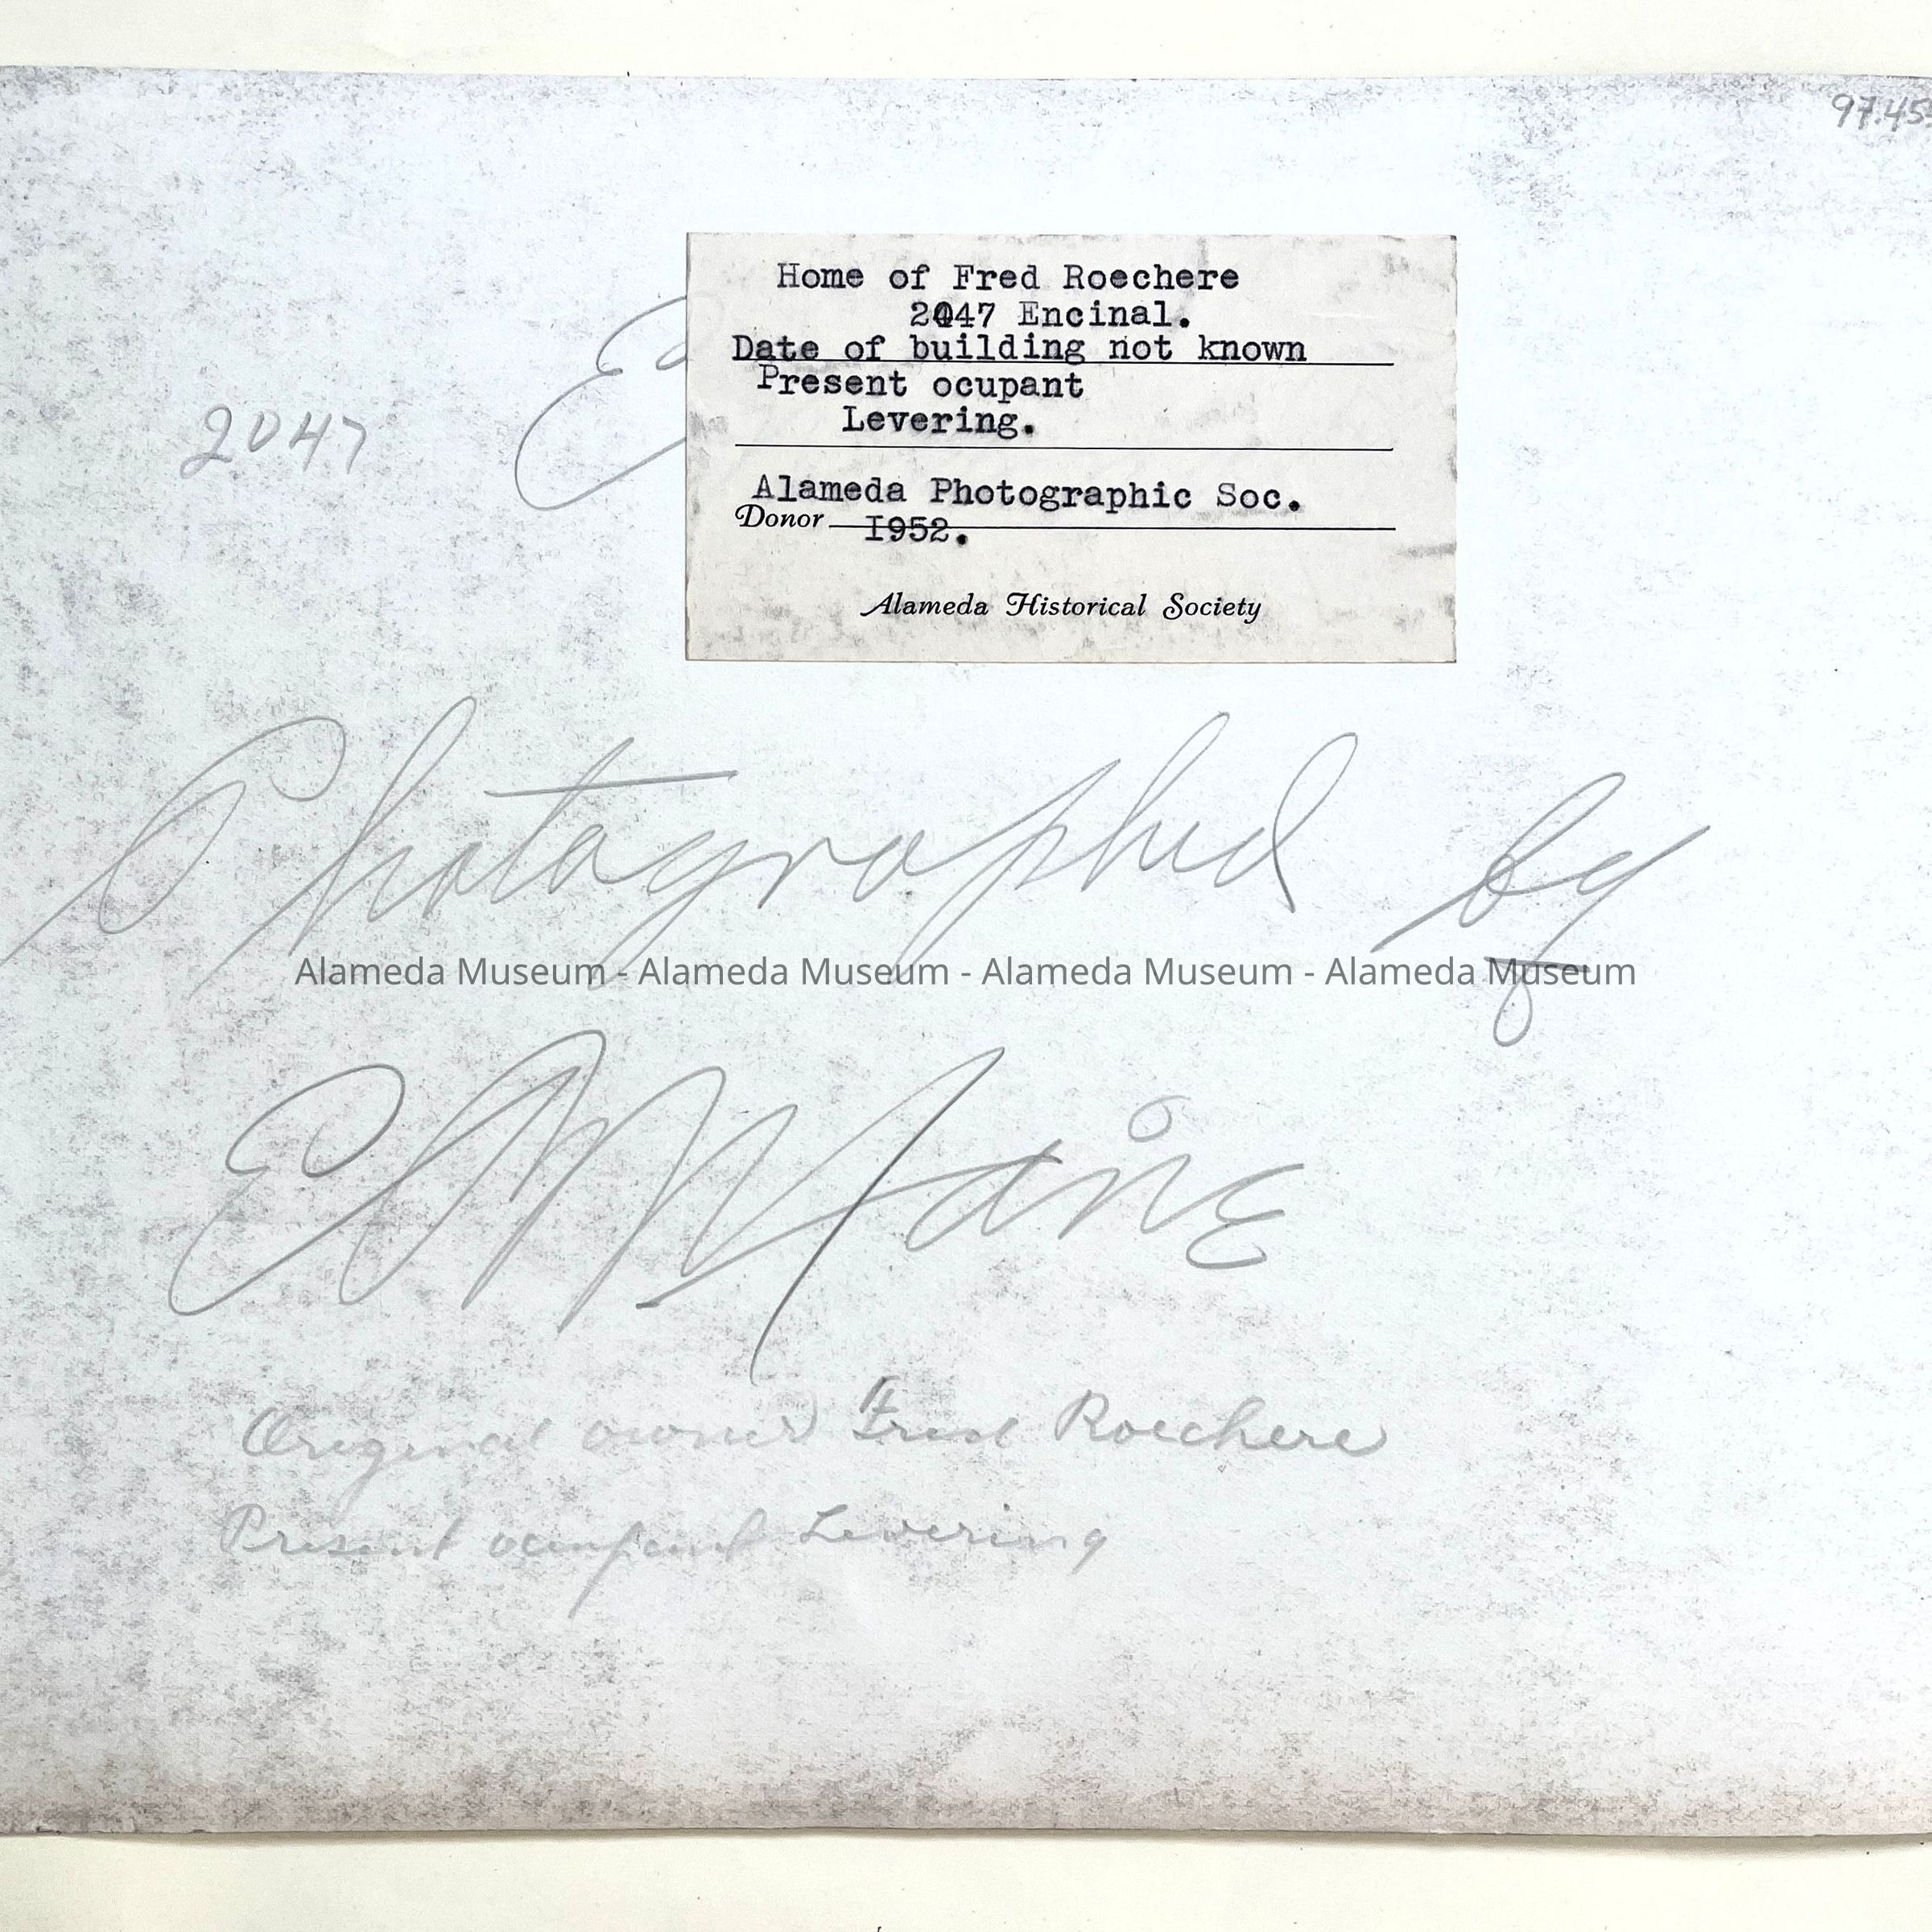 97.45
Home of Fred Roechere
2047 Encinal.
Date of building not known
Present ocupant
Levering.
Alameda Photographic Soc.
Donor 1952.
Alameda Historical Society
2047 E
Photographed by
Alameda Museum - Alameda Museum - Alameda Museum - Alameda Museum
Original owner Fred Roechere
Present ocupant Levering